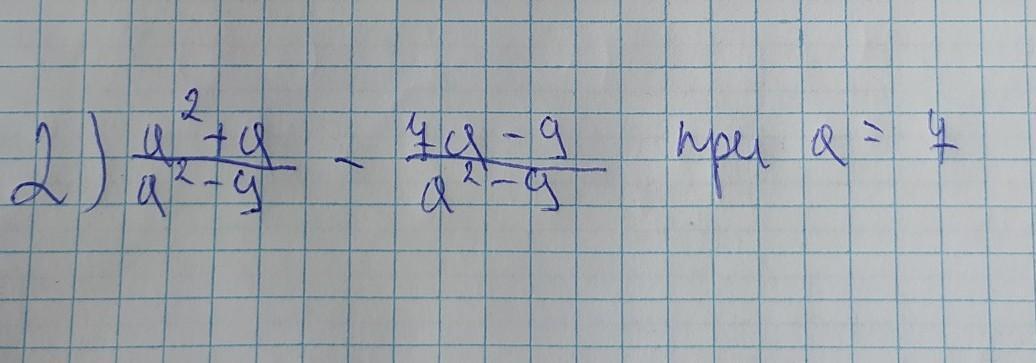 2) (a² + a)/(a² - 9) - (7a - 9)/(a² - 9) при a = 7